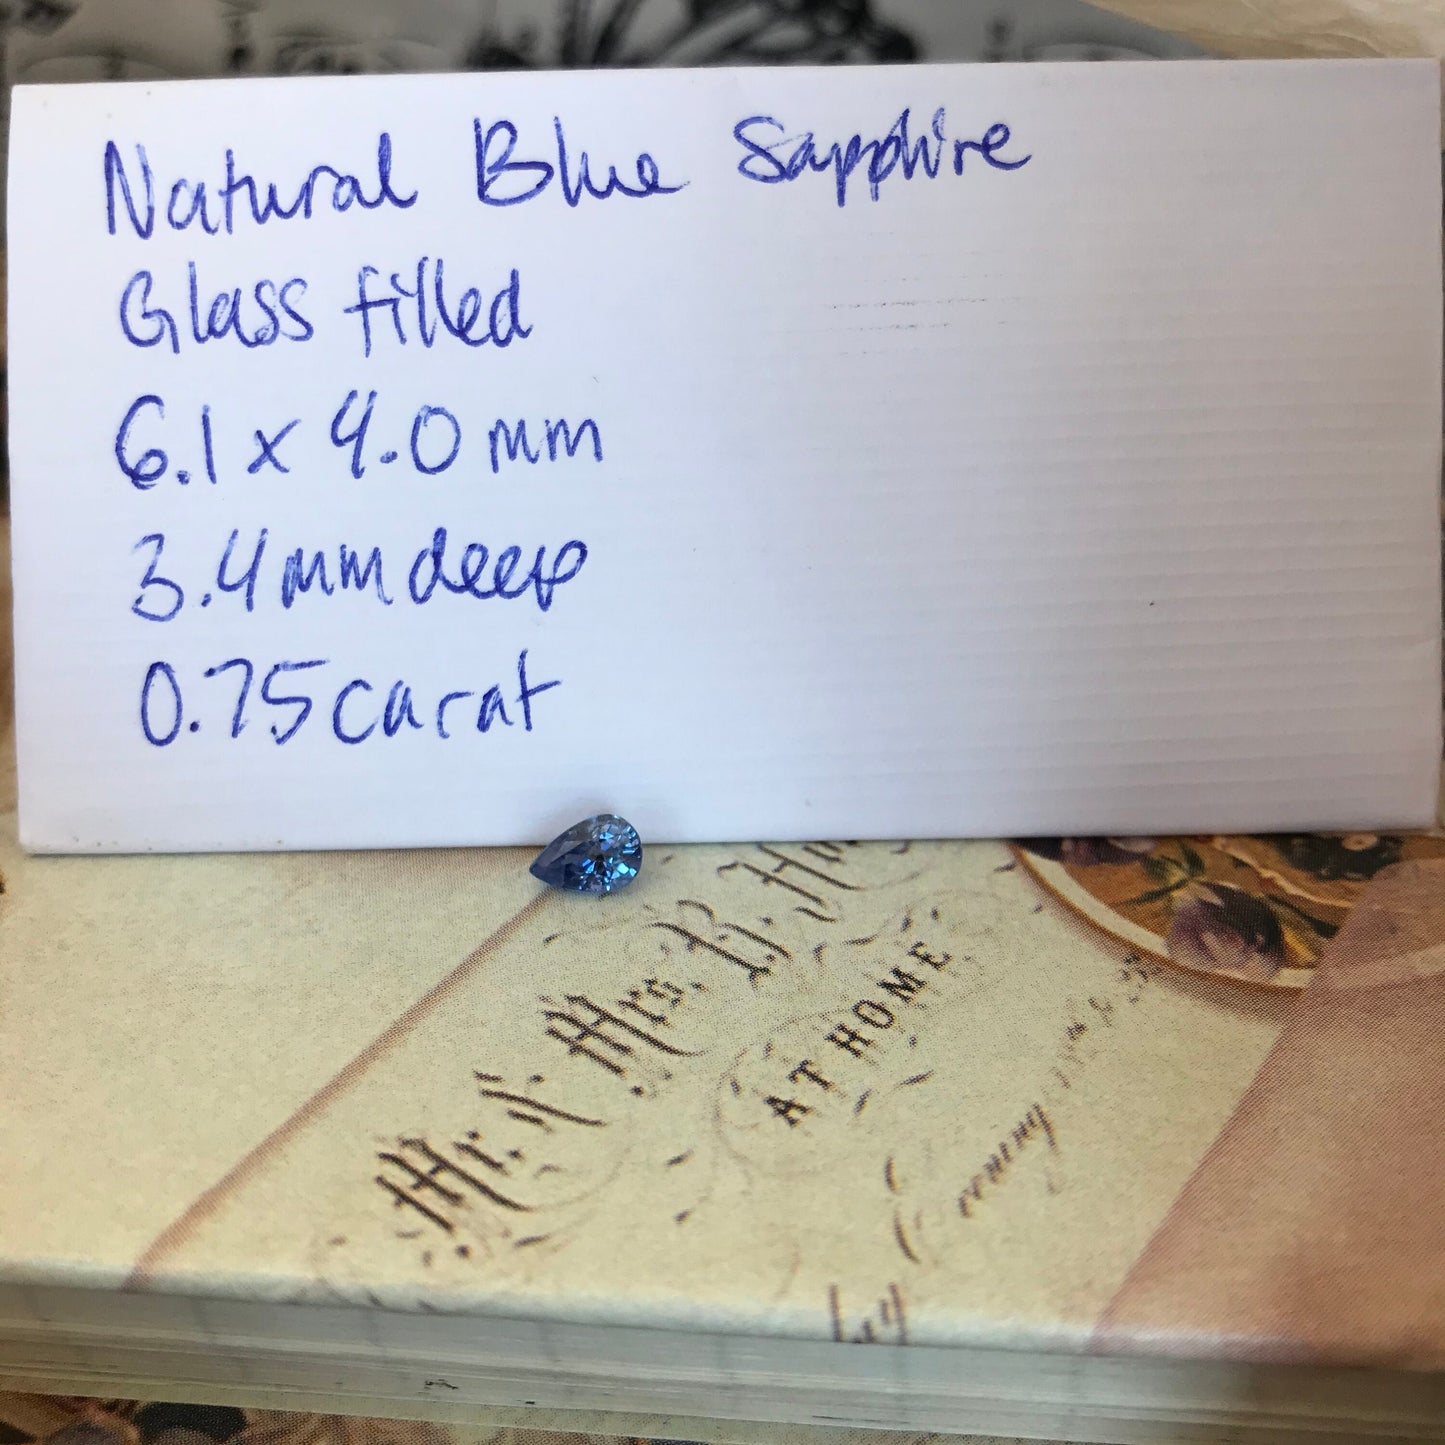 Natural Blue Sapphire
Glass filled
6.1 x 4.0 mm
3.4mm deep
0.75 carat
Mr. Mrs. B.
AT HOME